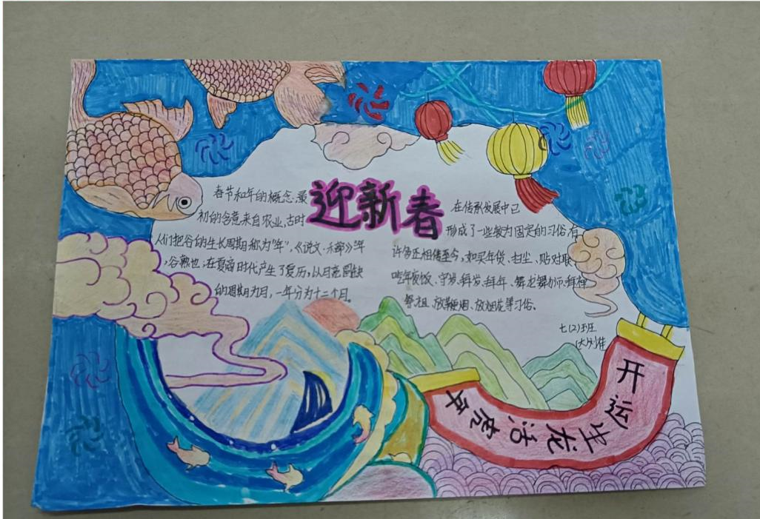 迎新春
春节和年的概念,最
初的含意来自农业,古时
人们把谷的生长周期称为"年",《说文·禾部》:年
,谷熟也,在夏商时代产生了夏历,以月亮圆缺
的周期为月,一年分为十二个月。
在传承发展中已
形成了一些较为固定的习俗,有
许多还相传至今,如买年货、扫尘、贴对联
吃年夜饭、守岁、拜岁、拜年、舞龙舞狮、拜神
祭祖、放鞭炮、放烟花等习俗。
七(2)班
开运生龙活虎年